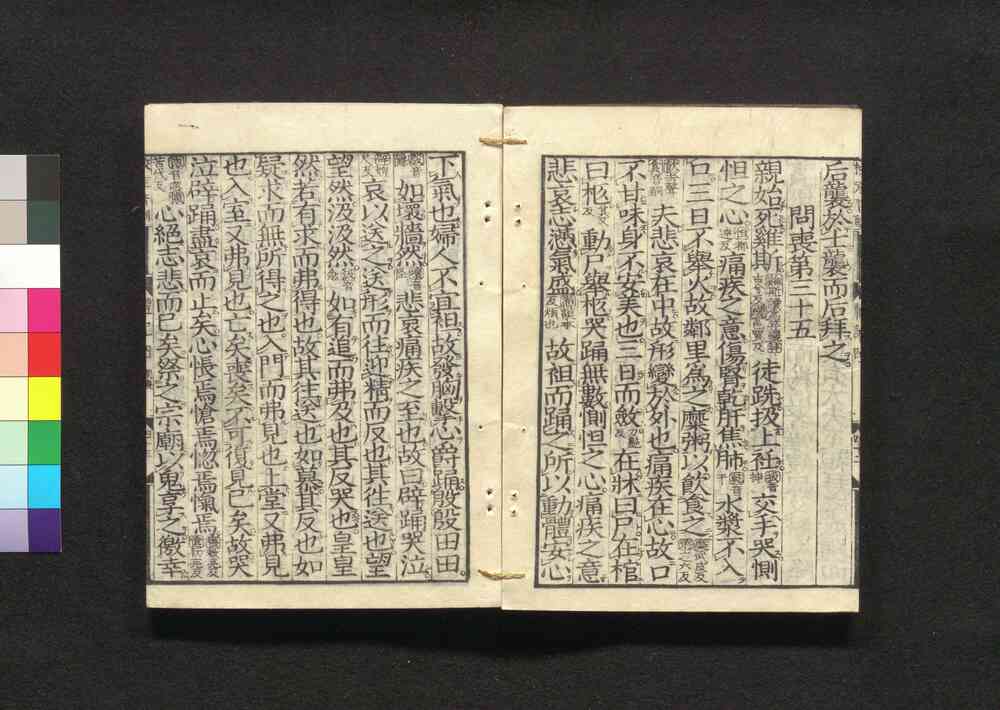 后襲於士襲而后拜之
問喪第三十五
親始死雞斯徒跣扱上衽交手哭惻
怛之心痛疾之意傷腎乾肝焦肺水漿不入
口三日不舉火故鄰里為之糜粥以飲食之
夫悲哀在中故形變於外也痛疾在心故口
不甘味身不安美也三日而斂在牀曰尸在棺
曰柩動尸舉柩哭踊無數惻怛之心痛疾之意
悲哀志懣氣盛故袒而踊之所以動體安心
下氣也婦人不宜袒故發胸擊心爵踊殷殷田田
如壞牆然悲哀痛疾之至也故曰辟踊哭泣
哀以送之送形而往迎精而反也其往送也望
望然汲汲然如有追而弗及也其反哭也皇皇
然若有求而弗得也故其往送也如慕其反也如
疑求而無所得之也入門而弗見也上堂又弗見
也入室又弗見也亡矣喪矣不可復見已矣故哭
泣辟踊盡哀而止矣心悵焉愴焉惚焉愾焉
心絕志悲而已矣祭之宗廟以鬼享之徼幸